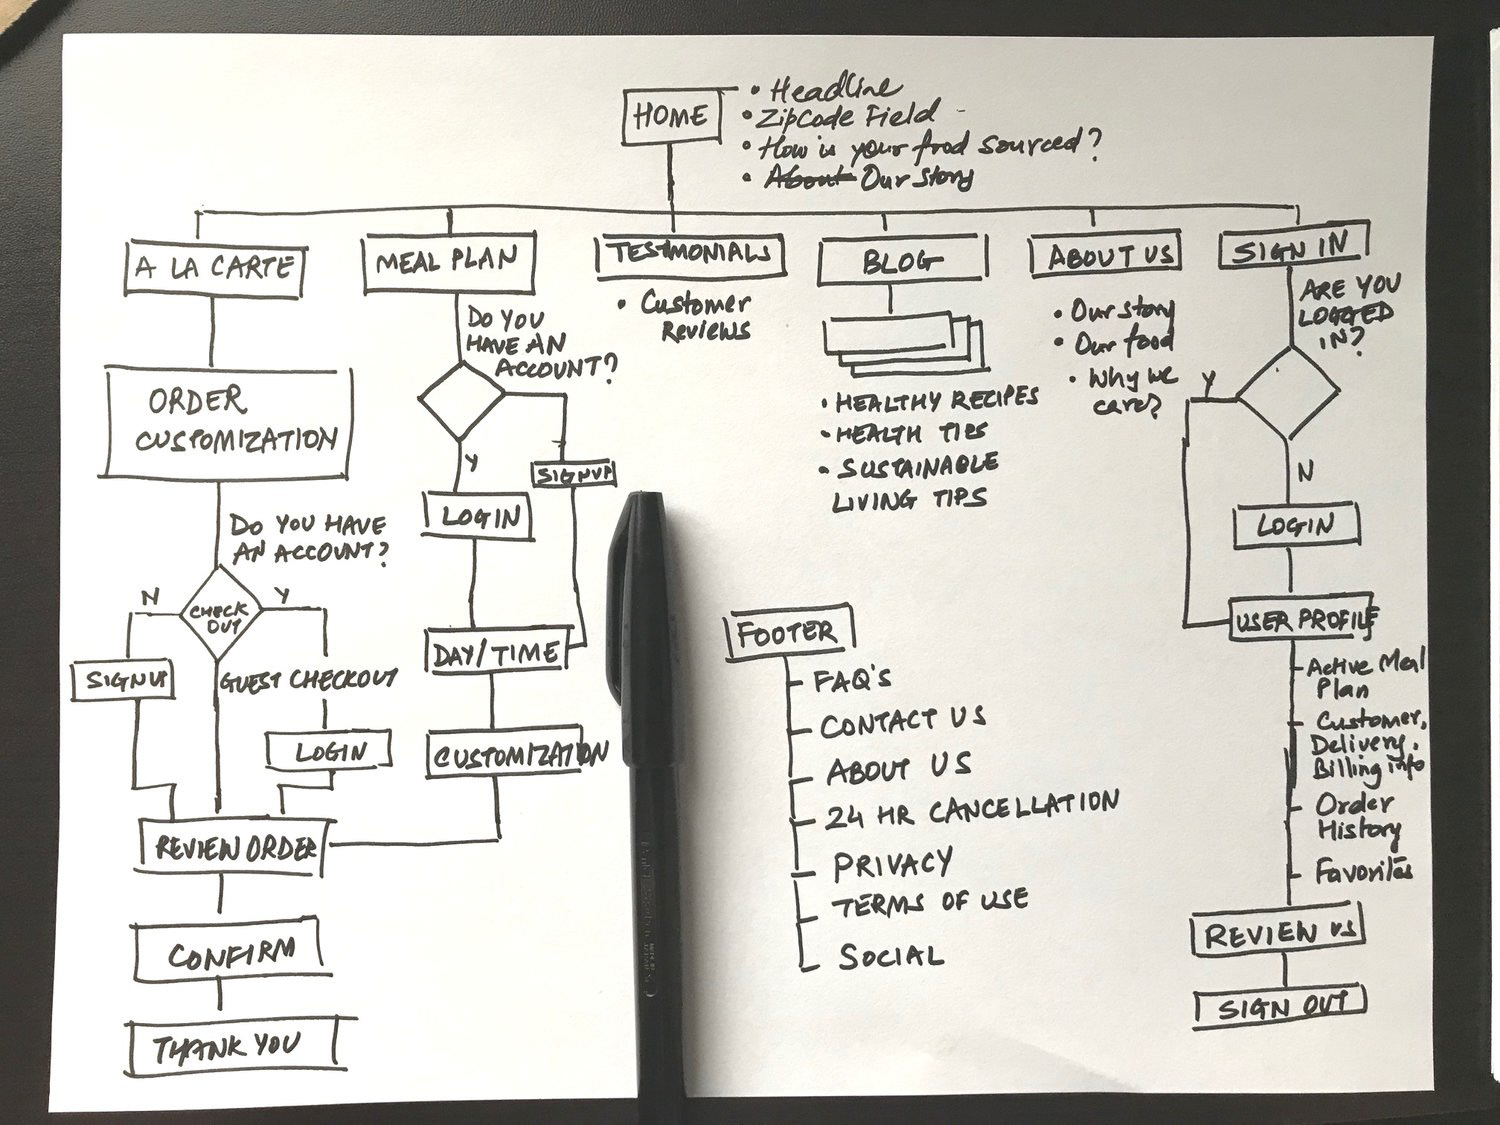 HOME
• Headline
• ZipCode Field -
• How is your food sourced?
• About Our story
A LA CARTE
MEAL PLAN
TESTIMONIALS
BLOG
ABOUT US
SIGN IN
ORDER
CUSTOMIZATION
DO YOU HAVE
AN ACCOUNT?
CHECK
OUT
N
Y
SIGNUP
GUEST CHECKOUT
LOGIN
REVIEW ORDER
CONFIRM
THANK YOU
DO YOU
HAVE AN
ACCOUNT?
Y
SIGNUP
LOGIN
DAY/TIME
CUSTOMIZATION
• Customer
Reviews
• HEALTHY RECIPES
• HEALTH TIPS
• SUSTAINABLE
LIVING TIPS
• Our story
• Our food
• Why we
care?
ARE YOU
LOGGED
IN?
Y
N
LOGIN
USER PROFILE
Active Meal
Plan
Customer,
Delivery,
Billing info
Order
History
Favorites
REVIEW US
SIGN OUT
FOOTER
FAQ'S
CONTACT US
ABOUT US
24 HR CANCELLATION
PRIVACY
TERMS OF USE
SOCIAL